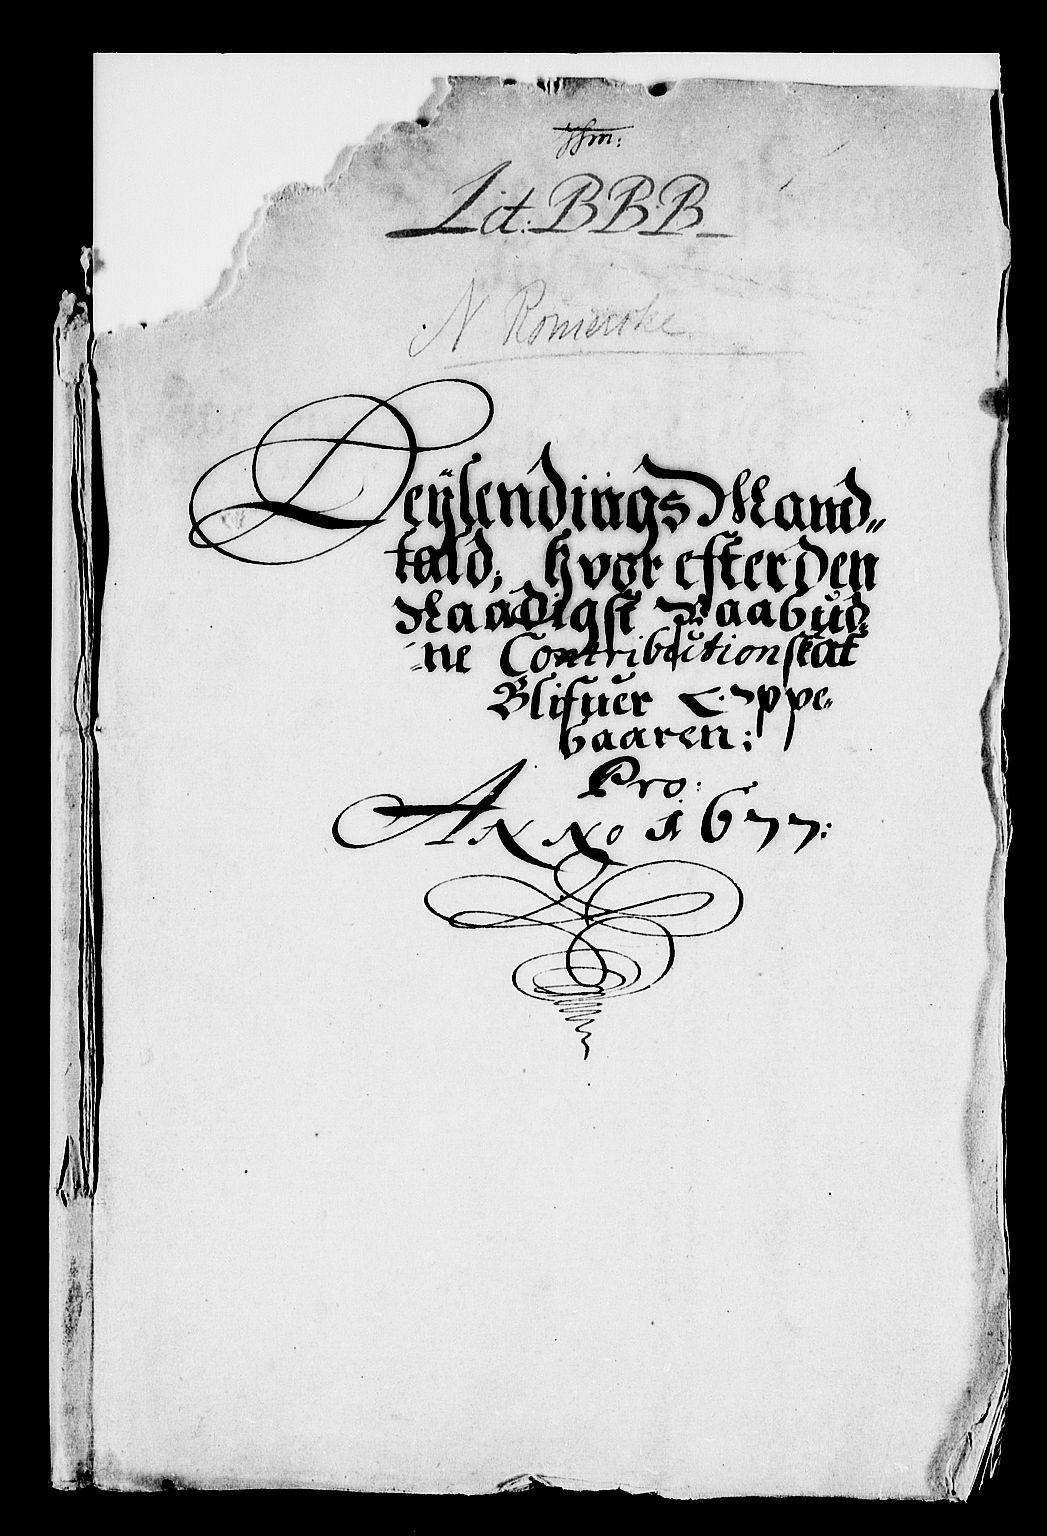 Lit: BBB
N Romerike
Deÿlendings Mand„
tald, hvor efter den
Naadigst Paabud„
ne Contributionskat
Blifuer Oppe„
baaren:
Pro:
Anno 1677: